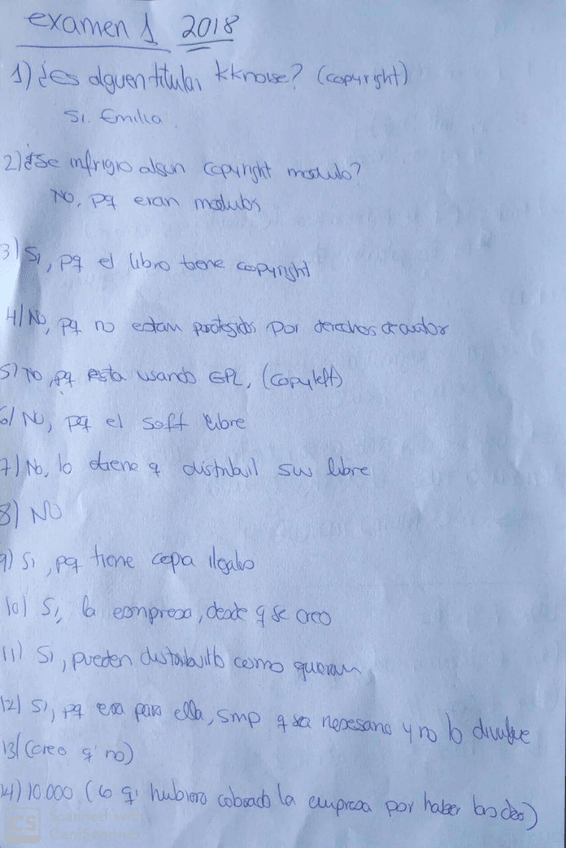 examen 1 2018
1) ¿es alguen titular kknouse? (copyright)
Si. Emilio
2) ¿Se infrigio algun copyright modulo?
NO, pq eran modulos
3) Si, pq el libro tiene copyright
4) No, pq no estam protegidos por derechos de autor
5) No, pq esta usando GPL, (copyleft)
6) No, pq el soft libre
7) No, lo tiene q distribuil sw libre
8) NO
9) Si, pq tiene copia ilegales
10) Si, la empresa, desde q se creo
11) Si, pueden distribuirlo como quieran
12) Si, pq era para ella, smp q sea nesesario y no lo divulge
13) (creo q no)
14) 10.000 (lo q hubiera cobrado la empresa por haber)
CS Scanned with
CamScanner